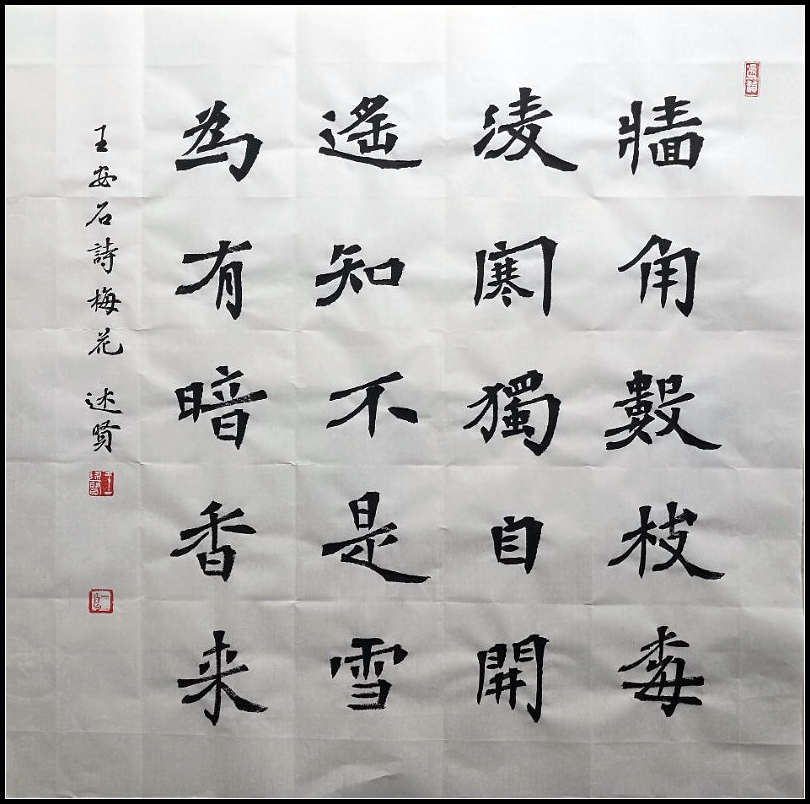 牆角數枝梅
淩寒獨自開
遙知不是雪
為有暗香来
王安石詩梅花 述賢